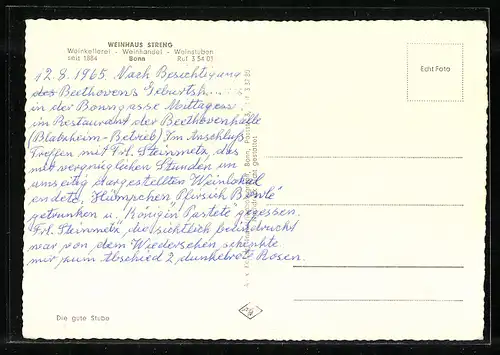 WEINHAUS STRENG
Weinkellerei - Weinhandel - Weinstuben
seit 1884 Bonn Ruf 3 54 03
Echt Foto
12.8.1965. Nach Besichtigung
des Beethovens Geburtsh
in der Bonngasse Mittagessen
im Restaurant der Beethovenhalle
(Blatzheim-Betrieb) Im Anschluß
Treffen mit Frl. Steinmetz, das
mit vergnüglichen Stunden im
umseitig dargestellten Weinlokal
endete, Kümpchen Pfirsich Bowle"
getrunken u. "Königin Pastete" gegessen.
Frl. Steinmetz, die sichtlich beeindruckt
war von dem Wiedersehen, schenkte
mir zum Abschied 2 dunkelrote Rosen.
Bonn,
gestattet
Die gute Stube